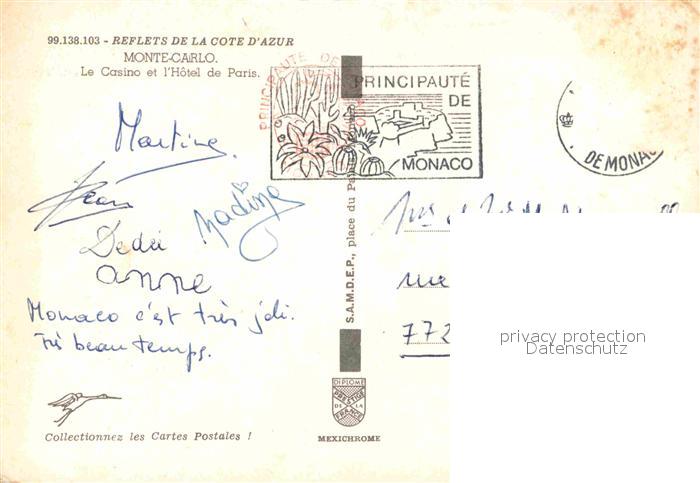 99.138.103 - REFLETS DE LA COTE D'AZUR
MONTE-CARLO.
Le Casino et l'Hôtel de Paris.
PRINCIPAUTÉ DE
PRINCIPAUTÉ
DE
MONACO
DE MONAC
Martine.
Jean
Nadine
Dédé
anne
Monaco c'est très joli.
Très beau temps.
S.A.M.D.E.P., place du
rue
772
privacy protection
Datenschutz
DIPLOME
PRESTIGE
DE LA
FRANCE
Collectionnez les Cartes Postales !
MEXICHROME